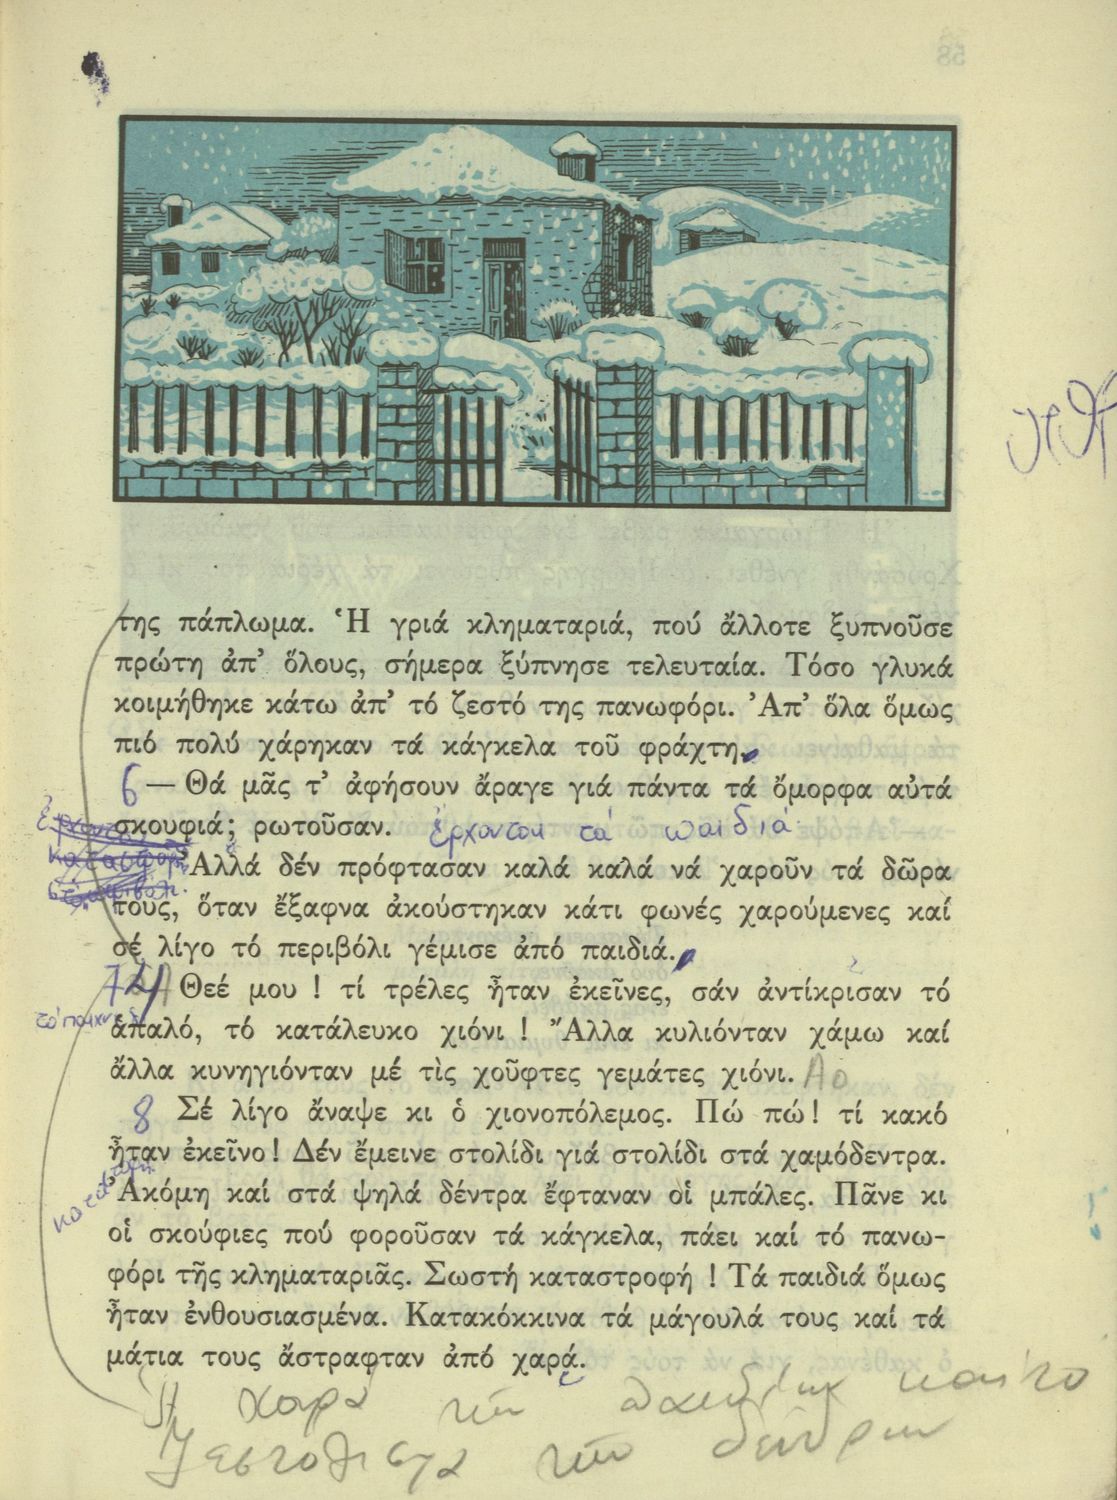 της πάπλωμα. Ἡ γριά κληματαριά, πού ἄλλοτε ξυπνοῦσε
πρώτη ἀπ' ὅλους, σήμερα ξύπνησε τελευταία. Τόσο γλυκά
κοιμήθηκε κάτω ἀπ' τό ζεστό της πανωφόρι. Ἀπ' ὅλα ὅμως
πιό πολύ χάρηκαν τά κάγκελα τοῦ φράχτη.
6 — Θά μᾶς τ' ἀφήσουν ἄραγε γιά πάντα τά ὄμορφα αὐτά
σκουφιά; ρωτοῦσαν. ἔρχονται τά παιδιά.
Ἀλλά δέν πρόφτασαν καλά καλά νά χαροῦν τά δῶρα
τους, ὅταν ἔξαφνα ἀκούστηκαν κάτι φωνές χαρούμενες καί
σέ λίγο τό περιβόλι γέμισε ἀπό παιδιά.
7 Θεέ μου ! τί τρέλες ἦταν ἐκεῖνες, σάν ἀντίκρισαν τό
ἁπαλό, τό κατάλευκο χιόνι ! Ἄλλα κυλιόνταν χάμω καί
ἄλλα κυνηγιόνταν μέ τὶς χοῦφτες γεμάτες χιόνι.
8 Σέ λίγο ἄναψε κι ὁ χιονοπόλεμος. Πώ πώ! τί κακό
ἦταν ἐκεῖνο! Δέν ἔμεινε στολίδι γιά στολίδι στά χαμόδεντρα.
Ἀκόμη καί στά ψηλά δέντρα ἔφταναν οἱ μπάλες. Πᾶνε κι
οἱ σκούφιες πού φοροῦσαν τά κάγκελα, πάει καί τό πανω-
φόρι τῆς κληματαριᾶς. Σωστή καταστροφή ! Τά παιδιά ὅμως
ἦταν ἐνθουσιασμένα. Κατακόκκινα τά μάγουλά τους καί τά
μάτια τους ἄστραφταν ἀπό χαρά.
Ἡ χαρά τῶν παιδιῶν καί τό
ξεστόλισμα τῶν δέντρων